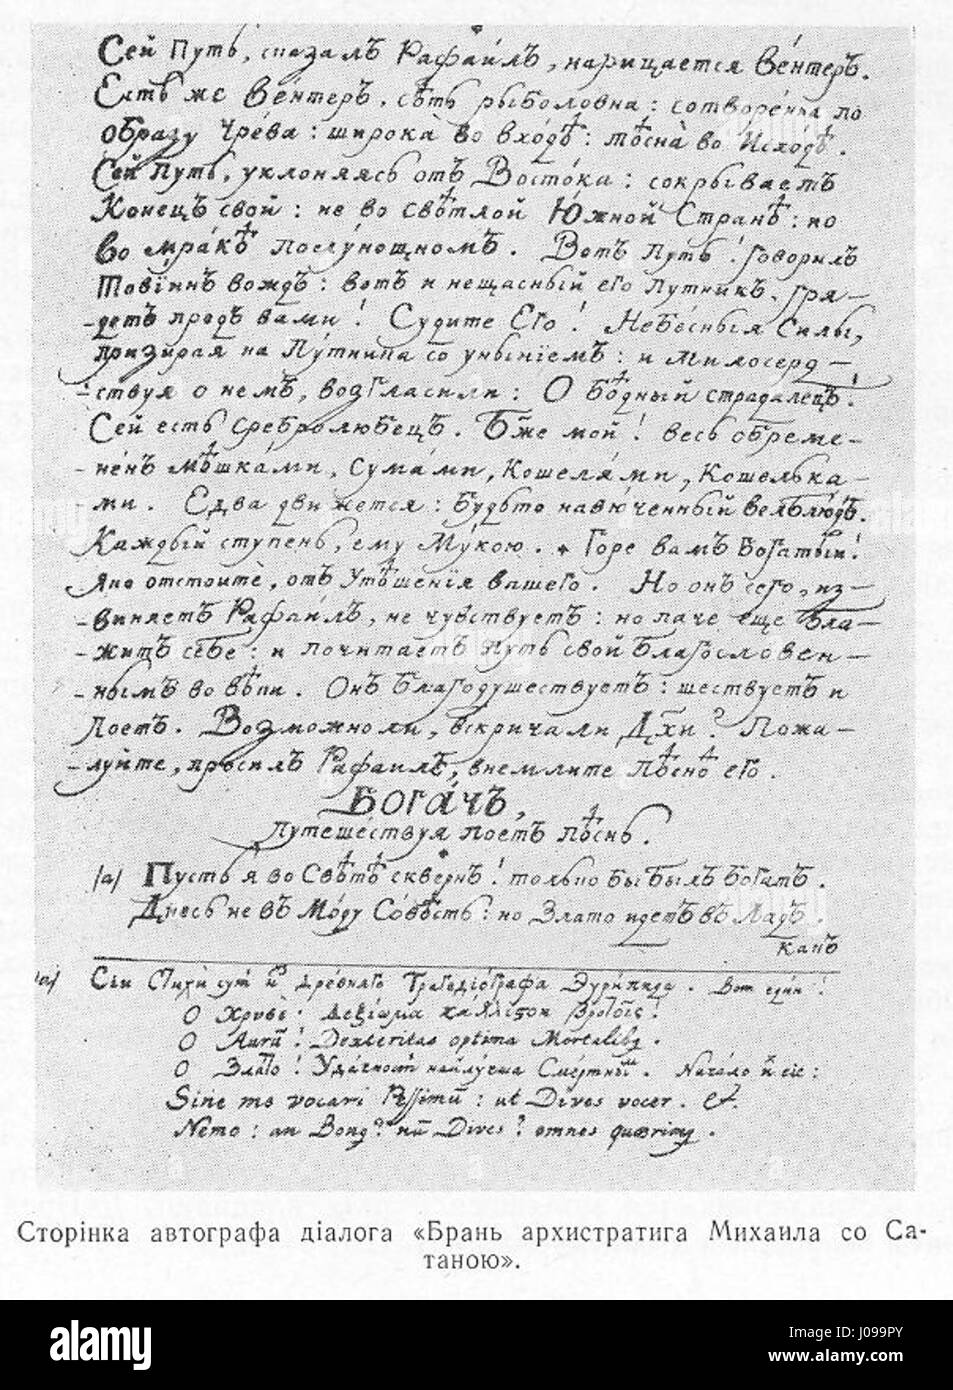 Сей Путь, сказалъ Рафаи́лъ, нарицается Ве́нтеръ.
Есть же Ве́нтеръ, сѣть рыболовна: сотворе́нна по
образу Чре́ва: широка̀ во вхо́дѣ: тѣсна̀ во Исхо́дѣ.
Сей Путь, уклоняясь отъ Восто́ка: сокрываетъ
Конецъ свой: не во свѣтлой Ю́жной Странѣ: но
во мра́кѣ полу́нощномъ. Вотъ Путь! говорилъ
Товїинъ вождъ: вотъ и нещасный его Путникъ. гря-
-детъ предъ вами! Судите Его! Небе́сныя Силы,
призирая на Пу́тника со унынїемъ: и милосерд-
-ствуя о немъ, возгласили: О бѣдный страдалецъ!
Сей есть сребролюбецъ. Бже мой! весь обреме-
-не́нъ мѣшка́ми, сума́ми, Кошеля́ми, Кошелька-
-ми. Едва движется: будьто навю́ченный велблю́дъ.
Каждый ступень, ему Му́кою. * Горе вамъ богатый!
яко отстоите̂, отъ Утѣшенїя вашего. Но онъ сего, из-
-виняетъ Рафаи́лъ, не чу́вствуетъ: но паче еще бла-
-житъ себѐ: и почитаетъ Путь свой благословен-
-нымъ во вѣки. Онъ благодушествуетъ: шествуетъ и
поетъ. Возможно ли, вскричали Дхи? Пожа-
-луйте, просилъ Рафаилъ, внемлите пѣсно его.
Бога́чъ,
Путеше́ствуя поетъ Пѣснь.
/а/ Пусть я во Свѣтѣ сквернъ! только бы былъ богатъ.
Днесь не въ Мо́ду Со́вѣсть: но Злато идетъ въ Ладъ.
Какъ
/а/ Сїи Стихи̂ сут из древняго Трагедїо́графа Эури́пида. Вот еди́н!
О Хрусѐ. Деξїωμα κάλλιϛον βροτοῖς!
O Aurū! Dexteritas optima Mortalibg.
О Злато! Уда́чность найлу́чша Сме́ртным. Нача́ло их сіе:
Sine me vocari Pessimū: ut Dives vocer. &.
Nemo: an Bong? nū Dives? omnes quærimg.
Сторінка автографа діалога «Брань архистратига Михаила со Са-
таною».
alamy
Image ID: J099PY
www.alamy.com